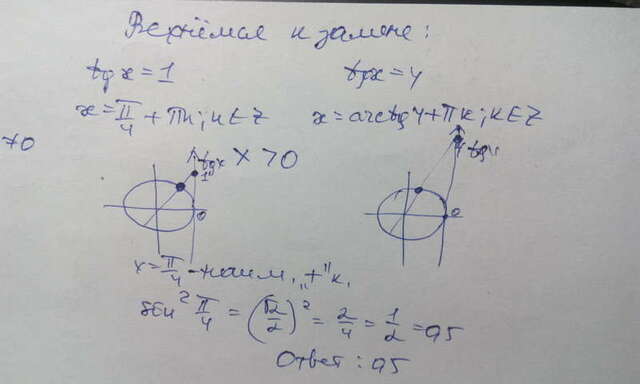 Вернёмся к замене:
tgx = 1 tgx = 4
x = π/4 + πn; n ∈ Z x = arctg4 + πk; k ∈ Z
>0
tgx x > 0
1
0
4 tg4
0
x = π/4 - наим. "+" к.
sin² π/4 = (√2/2)² = 2/4 = 1/2 = 0,5
Ответ: 0,5